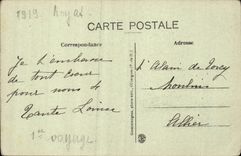 1919. Royan
CARTE POSTALE
Correspondance
Adresse
Je t'embrasse
de tout coeur
pour nous 4
Tante Louise
1er voyage
d'Alain de Torcy
Moulins
Allier